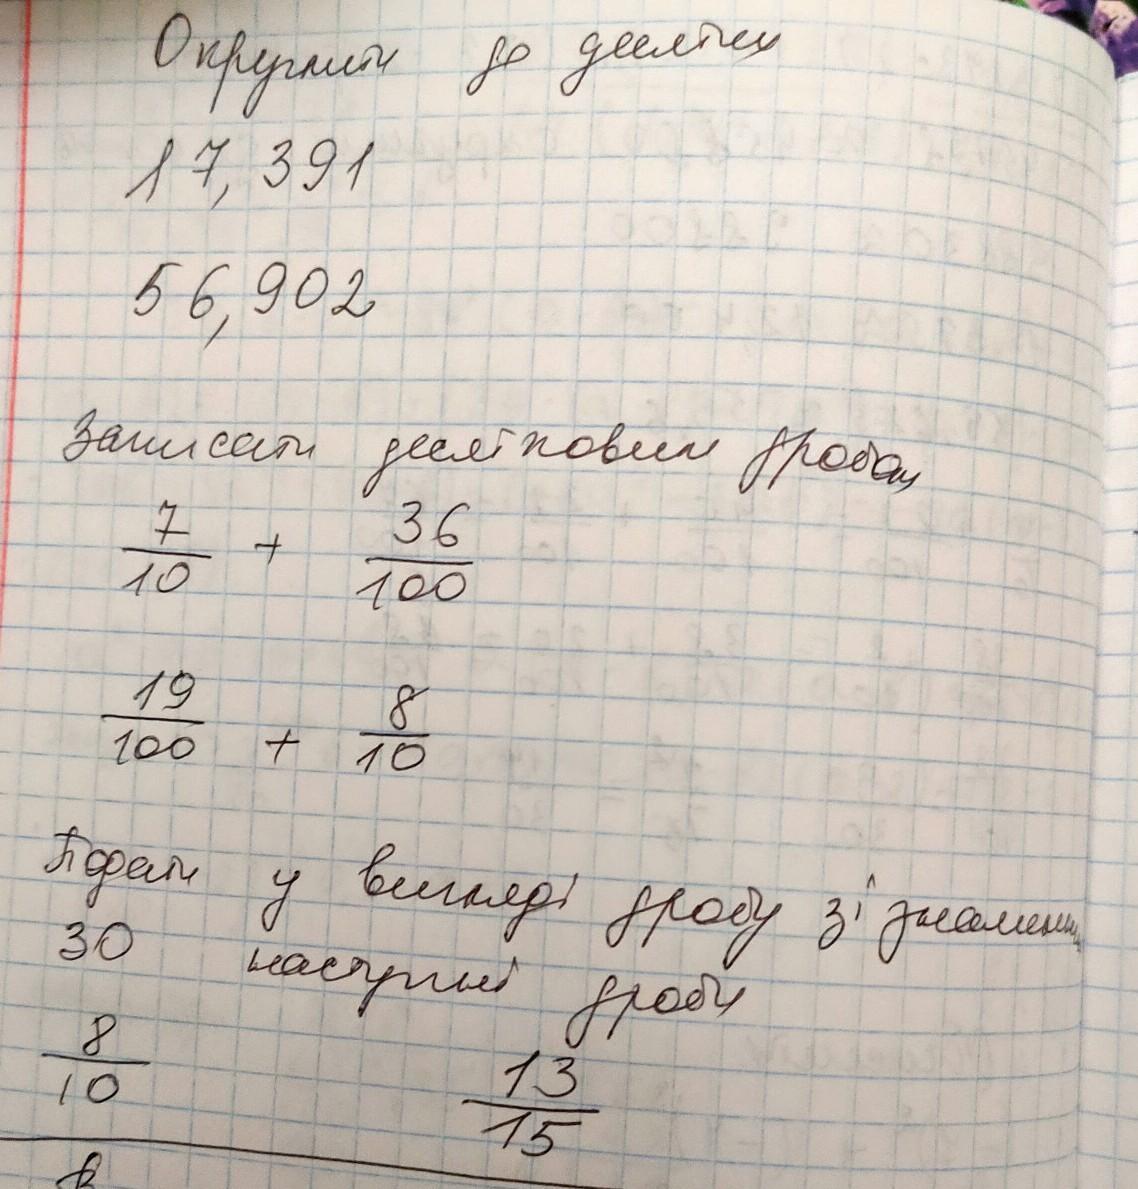 Округлити до десятих
17,391
56,902
Записати десятковим дробом
7/10 + 36/100
19/100 + 8/10
Подати у вигляді дробу зі знаменник
30 наступні дроби
8/10 13/15